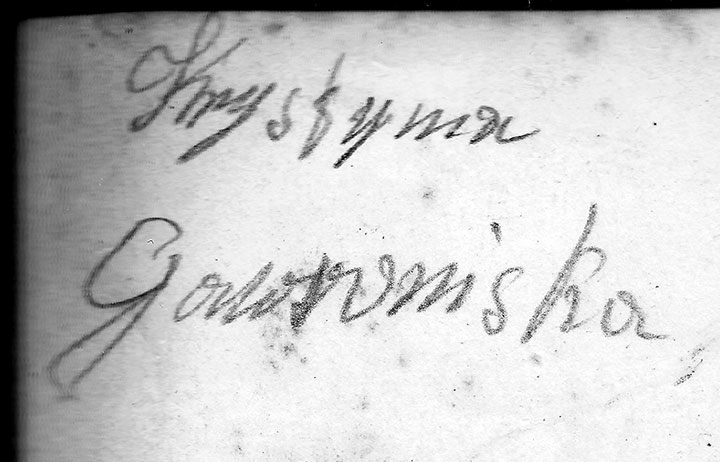 Krystyna
Gawrońska